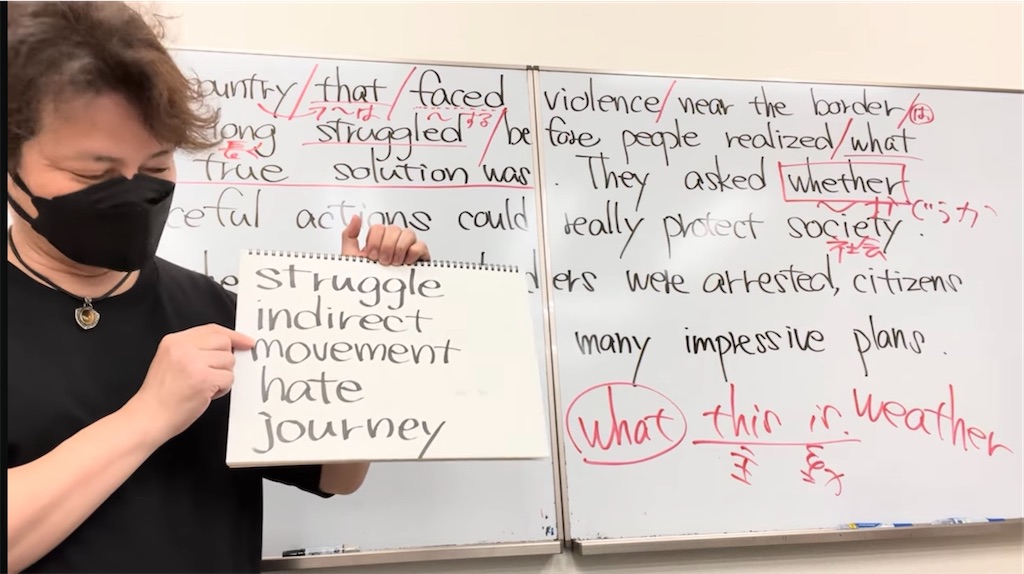 ountry/that/faced violence/near the border/は
～は ～する
long struggled/before people realized/what
長く
true solution was. They asked whether
～かどうか
ceful actions could really protect society.
社会
ers were arrested, citizens
many impressive plans.
what this is. weather
主 動
struggle
indirect
movement
hate
journey